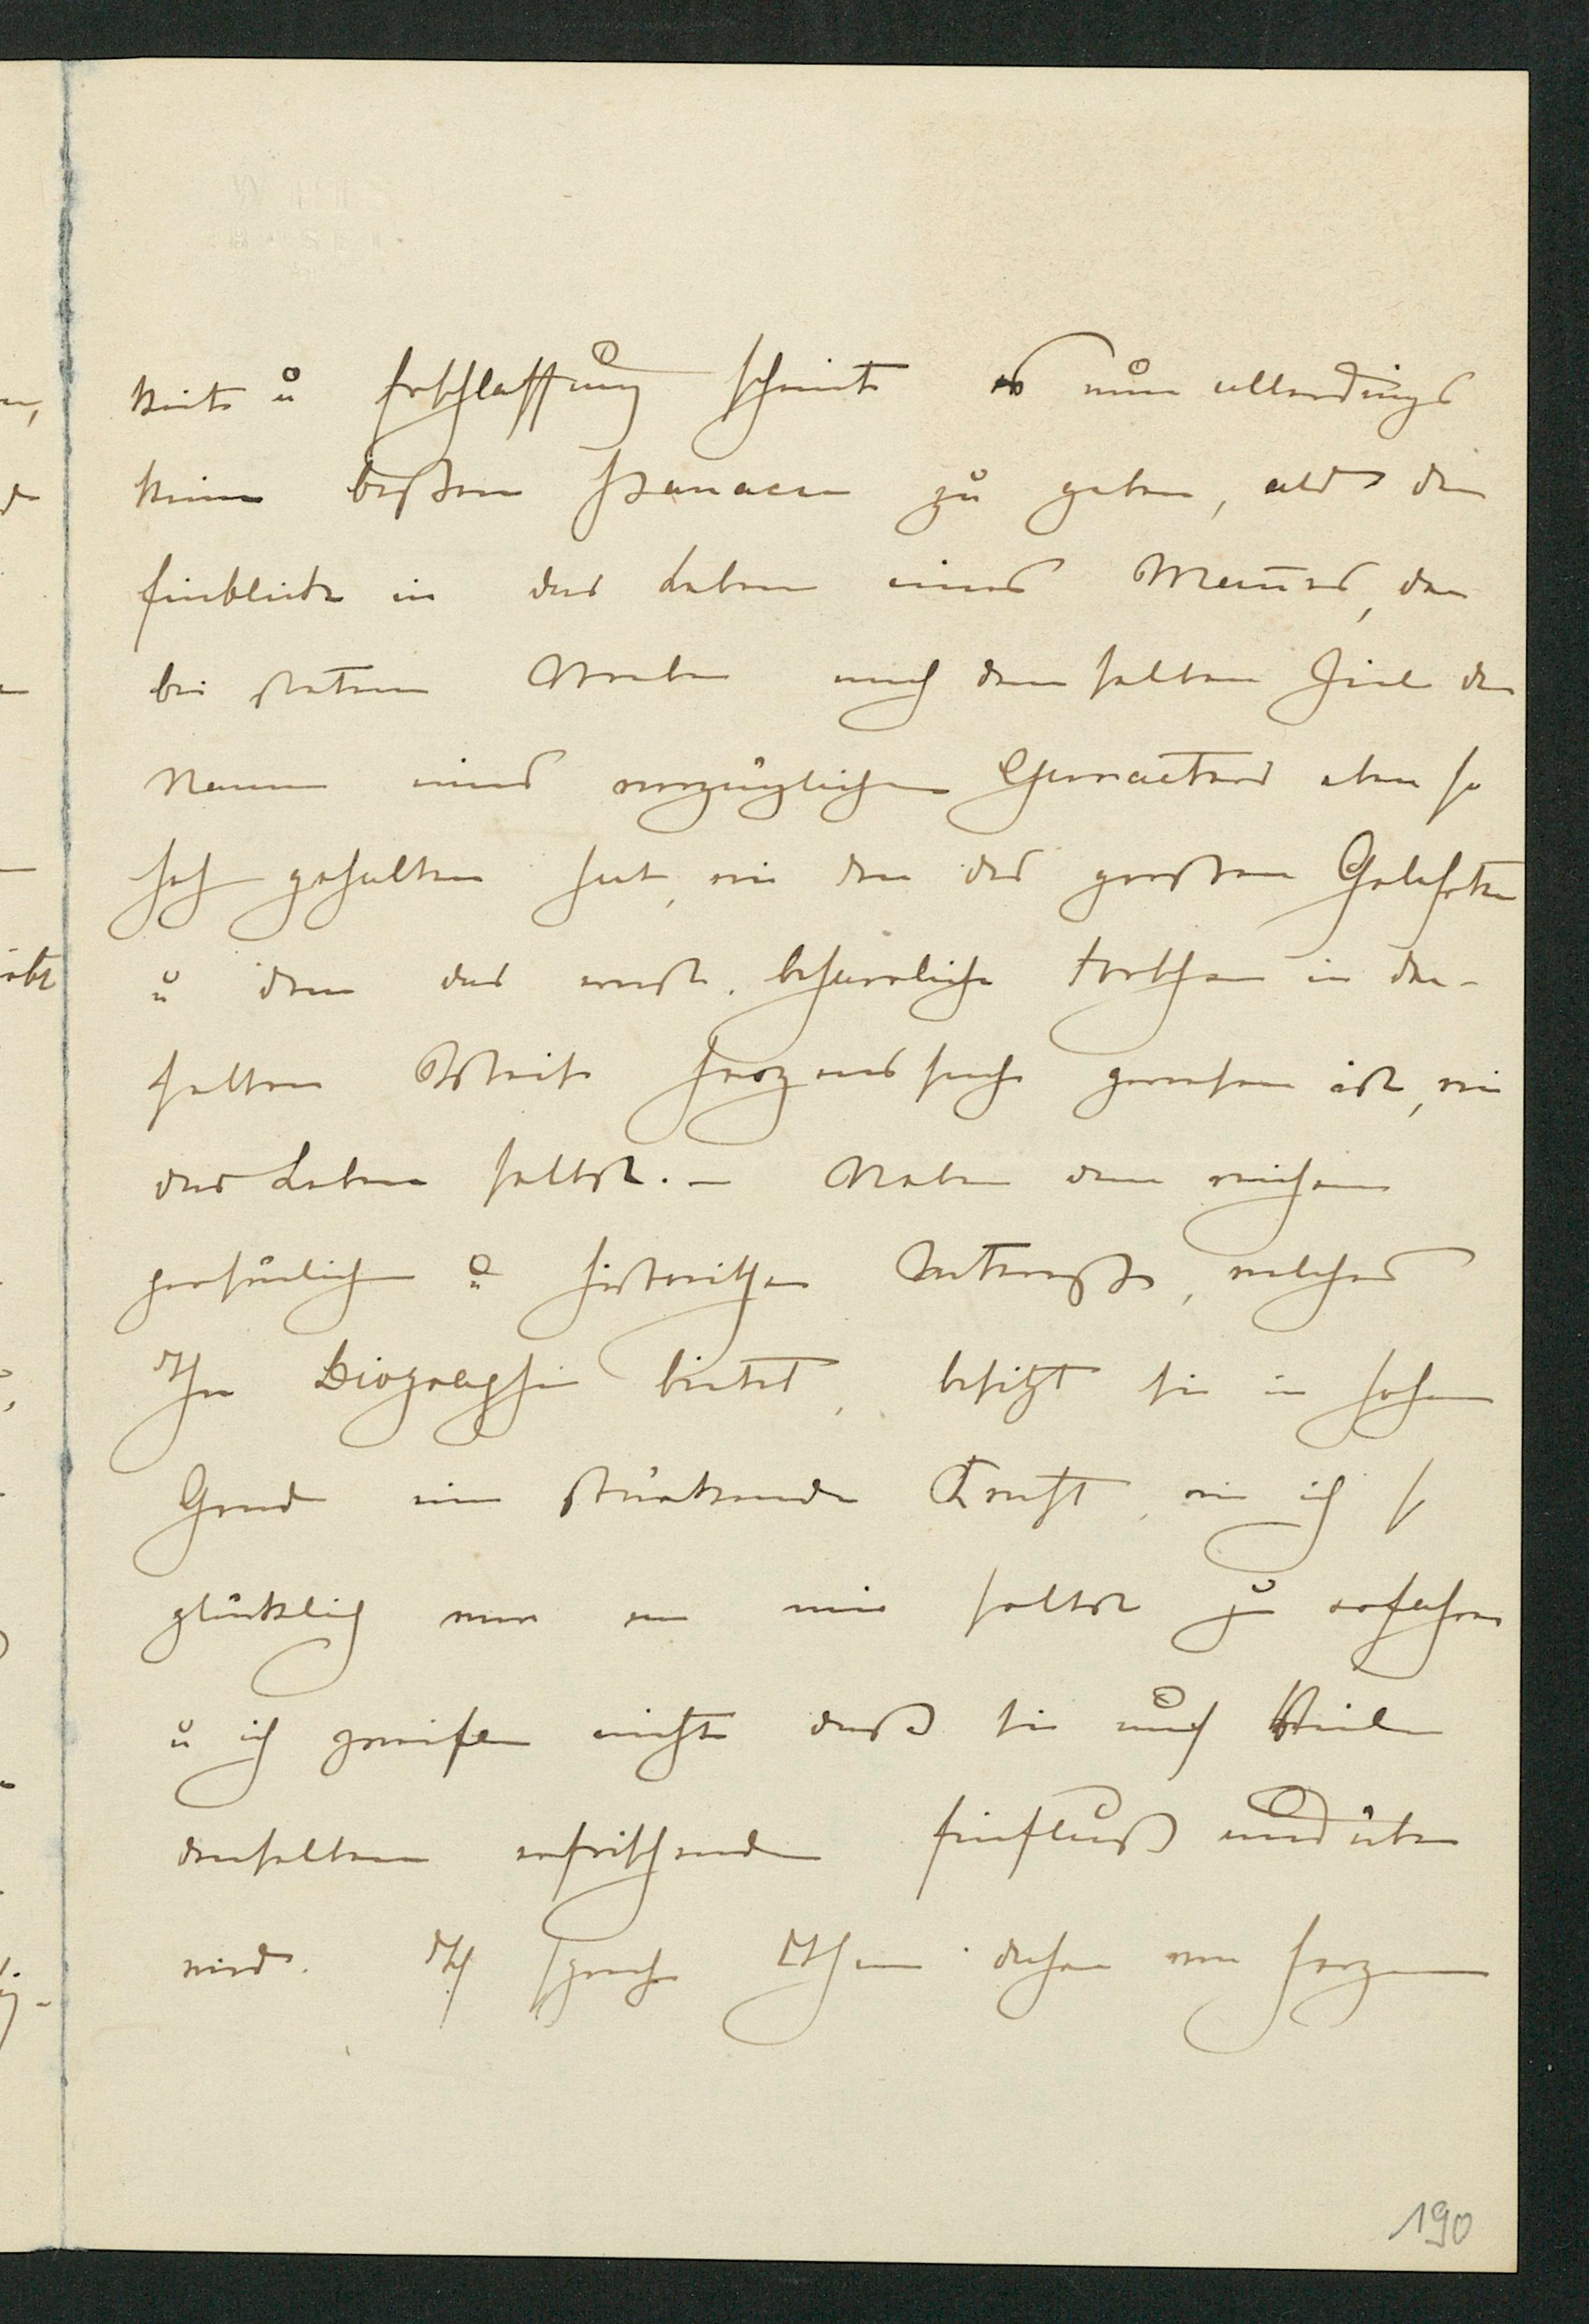 keit u Erschlaffung scheint es nun allerdings
keine beßere Panacee zu geben, als die
Einblicke in das Leben eines Mañes, der
bei stetem Streben nach dem selben Ziel den
Namen eines vorzüglichen Characters eben so
hoch gehalten hat, wie den des großen Gelehrten
u dem das ernste, beharrliche Forschen in der-
selben Weise Herzenssache gewesen ist, wie
das Leben selbst. — Neben dem reichen
persönlichen u historischen Interesse, welches
Ihre Biographie bietet, besitzt sie in hohem
Grade eine stärkende Kraft, wie ich so
glücklich war an mir selbst zu erfahren
u ich zweifle nicht daß sie auf Viele
denselben erfrischenden Einfluß ausüben
wird. Ich spreche Ihnen daher von Herzen
190